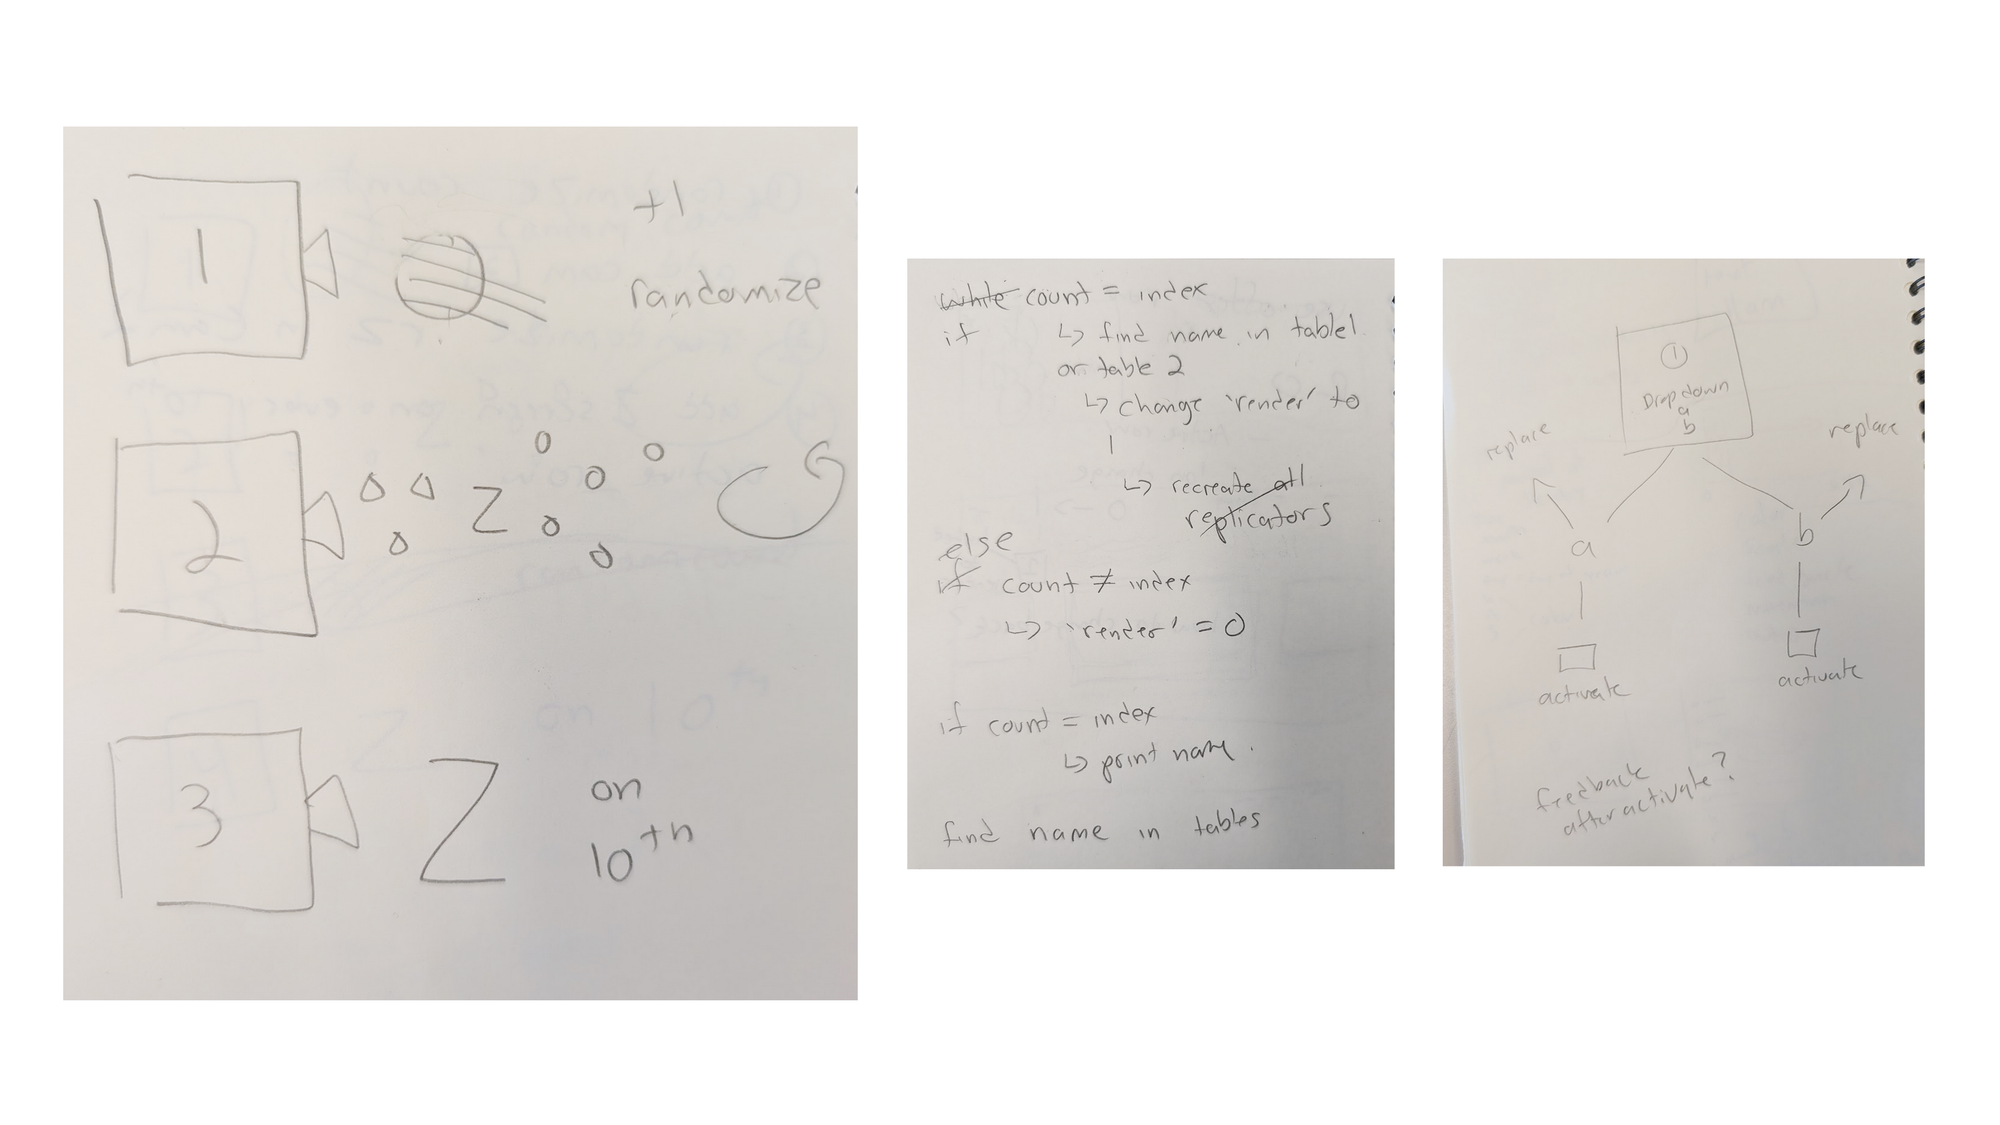 +1
1
randomize
2
Z
3
Z
on
10th
while count = index
if ↳ find name in table1
or table 2
↳ change 'render' to
1
↳ recreate all
replicators
else
if count ≠ index
↳ 'render' = 0
if count = index
↳ print name.
find name in tables
1
Dropdown
a
b
replace
replace
a
b
activate
activate
feedback
after activate?